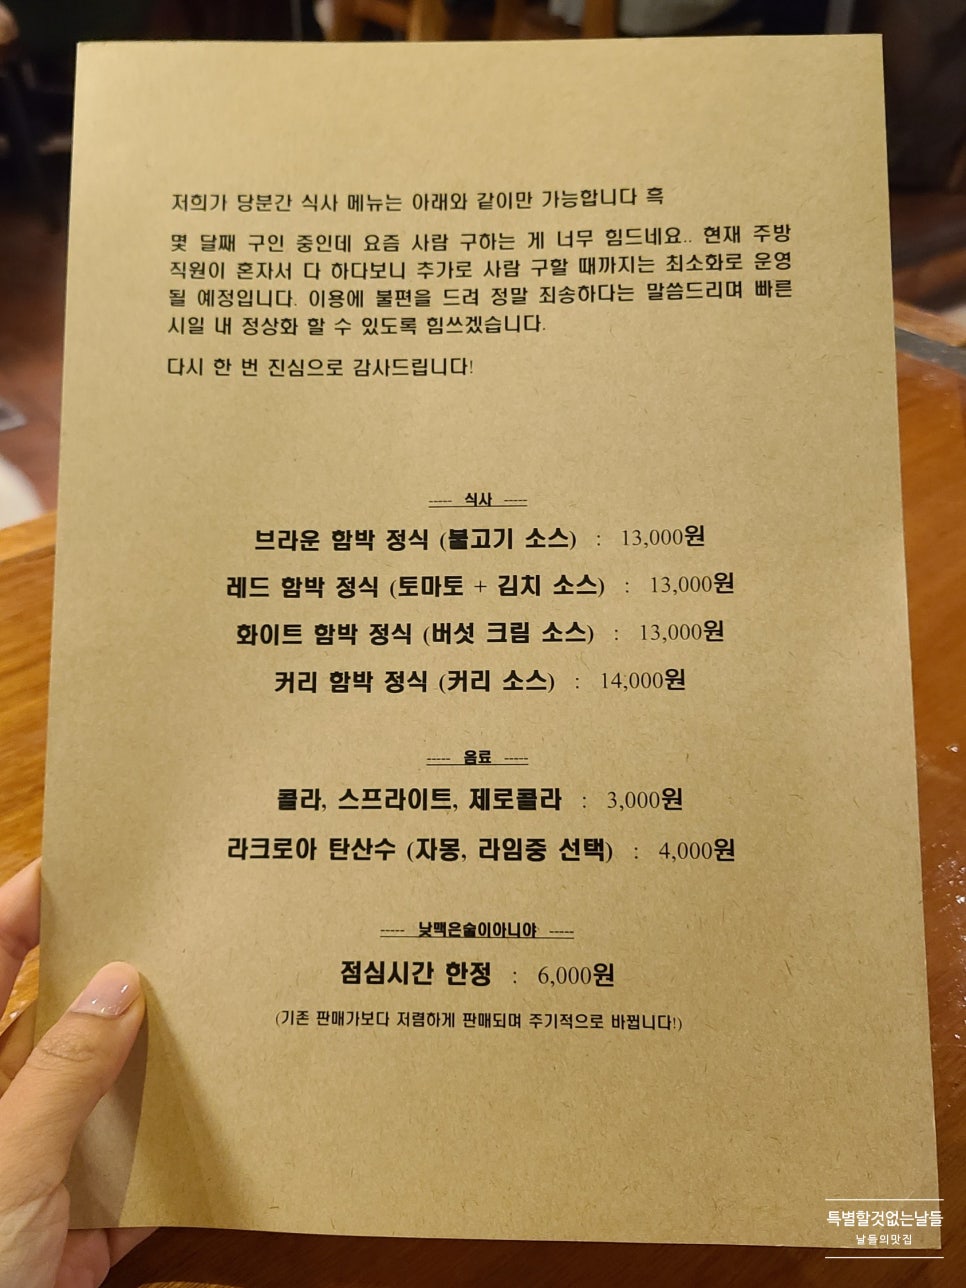 저희가 당분간 식사 메뉴는 아래와 같이만 가능합니다 흑
몇 달째 구인 중인데 요즘 사람 구하는 게 너무 힘드네요.. 현재 주방
직원이 혼자서 다 하다보니 추가로 사람 구할 때까지는 최소화로 운영
될 예정입니다. 이용에 불편을 드려 정말 죄송하다는 말씀드리며 빠른
시일 내 정상화 할 수 있도록 힘쓰겠습니다.
다시 한 번 진심으로 감사드립니다!
----- 식사 -----
브라운 함박 정식 (불고기 소스) : 13,000원
레드 함박 정식 (토마토 + 김치 소스) : 13,000원
화이트 함박 정식 (버섯 크림 소스) : 13,000원
커리 함박 정식 (커리 소스) : 14,000원
----- 음료 -----
콜라, 스프라이트, 제로콜라 : 3,000원
라크로아 탄산수 (자몽, 라임중 선택) : 4,000원
----- 낮맥은술이아니야 -----
점심시간 한정 : 6,000원
(기존 판매가보다 저렴하게 판매되며 주기적으로 바뀝니다!)
특별할것없는날들
날들의맛집